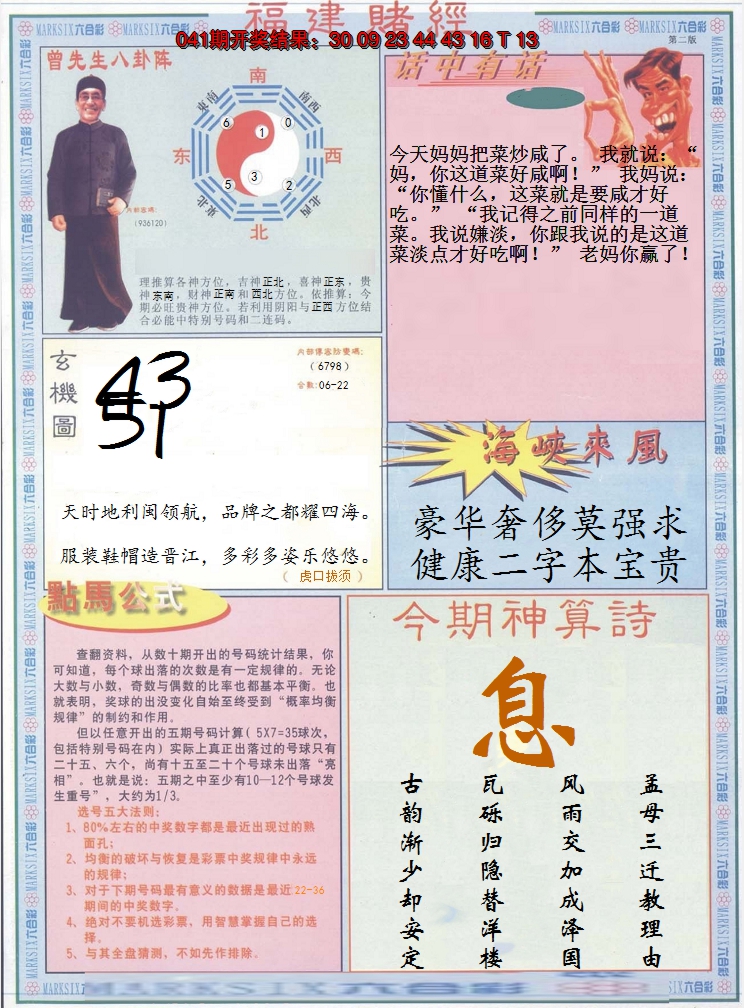 福建賭經
041期开奖结果：30 09 23 44 43 16 T 13
第二版
曾先生八卦阵
南
东南
西南
6
1
0
东
西
5
3
2
东北
西北
北
内部密碼:
（936120）
理推算各神方位，吉神正北，喜神正东，贵
神东南，财神正南和西北方位。依推算：今
期必旺贵神方位。若利用阴阳与正西方位结
合必能中特别号码和二连码。
话中有话
今天妈妈把菜炒咸了。 我就说：“
妈，你这道菜好咸啊！” 我妈说：
“你懂什么，这菜就是要咸才好
吃。” “我记得之前同样的一道
菜。我说嫌淡，你跟我说的是这道
菜淡点才好吃啊！” 老妈你赢了！
玄機圖
43
51
内部傳密防變碼:
（6798）
合数:06-22
天时地利闽领航，品牌之都耀四海。
服装鞋帽造晋江，多彩多姿乐悠悠。
（ 虎口拔须 ）
海峽來風
豪华奢侈莫强求
健康二字本宝贵
點馬公式
查翻资料，从数十期开出的号码统计结果，你
可知道，每个球出落的次数是有一定规律的。无论
大数与小数，奇数与偶数的比率也都基本平衡。也
就表明，奖球的出没变化自始至终受到“概率均衡
规律”的制约和作用。
但以任意开出的五期号码计算( 5X7=35球次，
包括特别号码在内) 实际上真正出落过的号球只有
二十五、六个，尚有十五至二十个号球未出落“亮
相”。也就是说：五期之中至少有10—12个号球发
生重号”，大约为1/3。
选号五大法则：
1、80%左右的中奖数字都是最近出现过的熟
面孔；
2、均衡的破坏与恢复是彩票中奖规律中永远
的规律；
3、对于下期号码最有意义的数据是最近22-36
期间的中奖数字。
4、绝对不要机选彩票，用智慧掌握自己的选
择。
5、与其全盘猜测，不如先作排除。
今期神算詩
息
孟母三迁教理由
风雨交加成泽国
瓦砾归隐替洋楼
古韵渐少却安定
MARKSIX六合彩